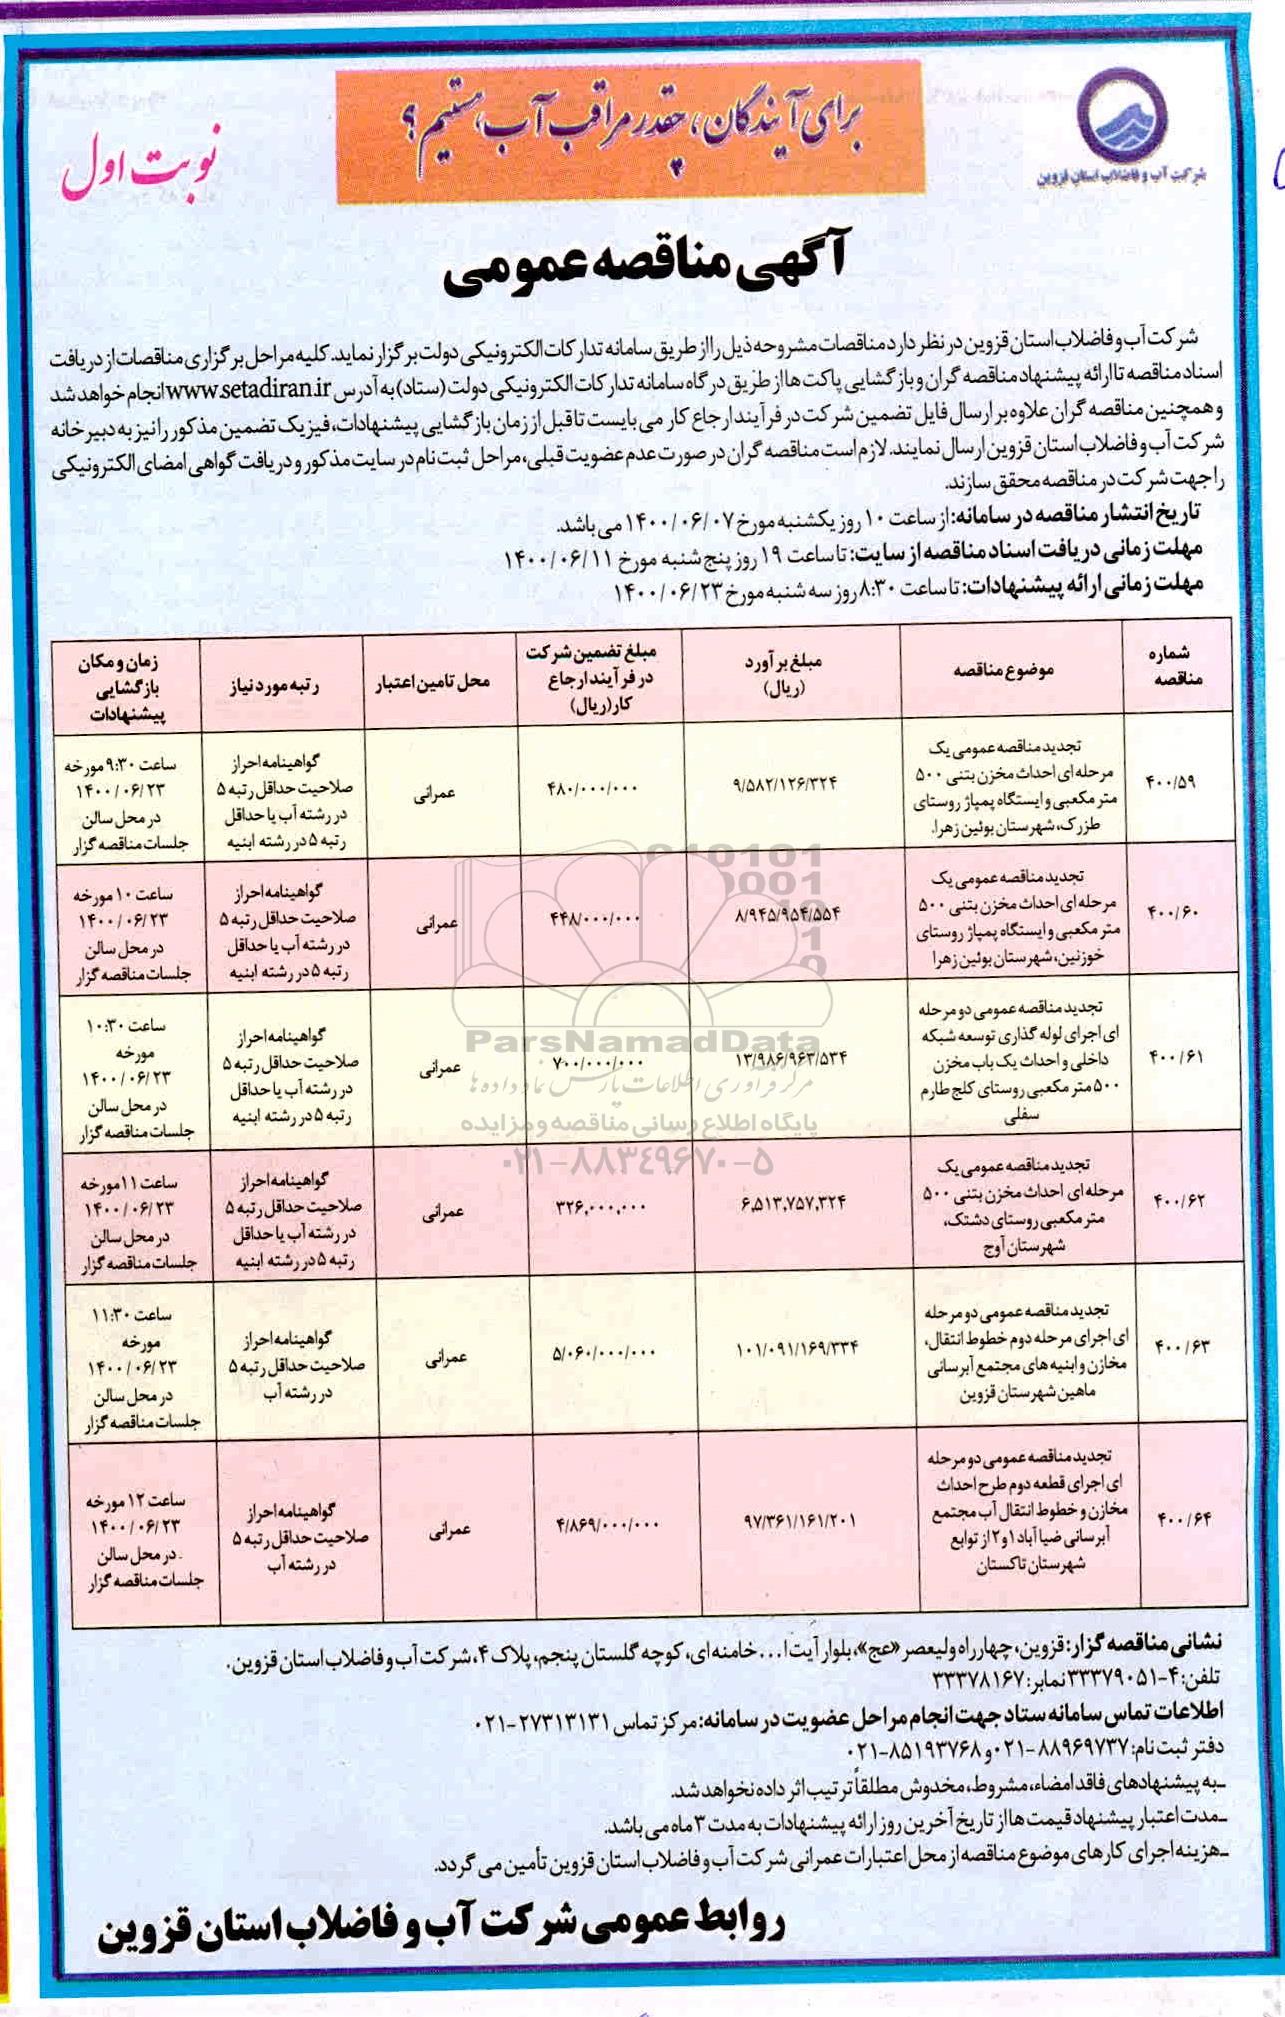 برای آیندگان، چقدر مراقب آب هستیم؟
شرکت آب و فاضلاب استان قزوین
نوبت اول
آگهی مناقصه عمومی
شرکت آب و فاضلاب استان قزوین در نظر دارد مناقصات مشروحه ذیل را از طریق سامانه تدارکات الکترونیکی دولت برگزار نماید. کلیه مراحل برگزاری مناقصات از دریافت
اسناد مناقصه تا ارائه پیشنهاد مناقصه گران و بازگشایی پاکت ها از طریق درگاه سامانه تدارکات الکترونیکی دولت (ستاد) به آدرس www.setadiran.ir انجام خواهد شد
و همچنین مناقصه گران علاوه بر ارسال فایل تضمین شرکت در فرآیند ارجاع کار می بایست تا قبل از زمان بازگشایی پیشنهادات، فیزیک تضمین مذکور را نیز به دبیرخانه
شرکت آب و فاضلاب استان قزوین ارسال نمایند. لازم است مناقصه گران در صورت عدم عضویت قبلی، مراحل ثبت نام در سایت مذکور و دریافت گواهی امضای الکترونیکی
را جهت شرکت در مناقصه محقق سازند.
تاریخ انتشار مناقصه در سامانه: از ساعت ۱۰ روز یکشنبه مورخ ۱۴۰۰/۰۶/۰۷ می باشد.
مهلت زمانی دریافت اسناد مناقصه از سایت: تا ساعت ۱۹ روز پنج شنبه مورخ ۱۴۰۰/۰۶/۱۱
مهلت زمانی ارائه پیشنهادات: تا ساعت ۸:۳۰ روز سه شنبه مورخ ۱۴۰۰/۰۶/۲۳
شماره
مناقصه
موضوع مناقصه
مبلغ برآورد
(ریال)
مبلغ تضمین شرکت
در فرآیند ارجاع
کار(ریال)
محل تامین اعتبار
رتبه مورد نیاز
زمان و مکان
بازگشایی
پیشنهادات
۴۰۰/۵۹
تجدید مناقصه عمومی یک
مرحله ای احداث مخزن بتنی ۵۰۰
متر مکعبی و ایستگاه پمپاژ روستای
طزرک، شهرستان بوئین زهرا.
۹/۵۸۲/۱۲۶/۳۲۴
۴۸۰/۰۰۰/۰۰۰
عمرانی
گواهینامه احراز
صلاحیت حداقل رتبه ۵
در رشته آب یا حداقل
رتبه ۵ در رشته ابنیه
ساعت ۹:۳۰ مورخه
۱۴۰۰/۰۶/۲۳
در محل سالن
جلسات مناقصه گزار
۴۰۰/۶۰
تجدید مناقصه عمومی یک
مرحله ای احداث مخزن بتنی ۵۰۰
متر مکعبی و ایستگاه پمپاژ روستای
خوزنین، شهرستان بوئین زهرا
۸/۹۴۵/۹۵۴/۵۵۴
۴۴۸/۰۰۰/۰۰۰
عمرانی
گواهینامه احراز
صلاحیت حداقل رتبه ۵
در رشته آب یا حداقل
رتبه ۵ در رشته ابنیه
ساعت ۱۰ مورخه
۱۴۰۰/۰۶/۲۳
در محل سالن
جلسات مناقصه گزار
۴۰۰/۶۱
تجدید مناقصه عمومی دو مرحله
ای اجرای لوله گذاری توسعه شبکه
داخلی و احداث یک باب مخزن
۵۰۰ متر مکعبی روستای کلج طارم
سفلی
۱۳/۹۸۶/۹۶۳/۵۳۴
۷۰۰/۰۰۰/۰۰۰
عمرانی
گواهینامه احراز
صلاحیت حداقل رتبه ۵
در رشته آب یا حداقل
رتبه ۵ در رشته ابنیه
ساعت ۱۰:۳۰
مورخه
۱۴۰۰/۰۶/۲۳
در محل سالن
جلسات مناقصه گزار
۴۰۰/۶۲
تجدید مناقصه عمومی یک
مرحله ای احداث مخزن بتنی ۵۰۰
متر مکعبی روستای دشتک،
شهرستان آوج
۶,۵۱۳,۷۵۷,۳۲۴
۳۲۶,۰۰۰,۰۰۰
عمرانی
گواهینامه احراز
صلاحیت حداقل رتبه ۵
در رشته آب یا حداقل
رتبه ۵ در رشته ابنیه
ساعت ۱۱ مورخه
۱۴۰۰/۰۶/۲۳
در محل سالن
جلسات مناقصه گزار
۴۰۰/۶۳
تجدید مناقصه عمومی دو مرحله
ای اجرای مرحله دوم خطوط انتقال،
مخازن و ابنیه های مجتمع آبرسانی
ماهین شهرستان قزوین
۱۰۱/۰۹۱/۱۶۹/۳۳۴
۵/۰۶۰/۰۰۰/۰۰۰
عمرانی
گواهینامه احراز
صلاحیت حداقل رتبه ۵
در رشته آب
ساعت ۱۱:۳۰
مورخه
۱۴۰۰/۰۶/۲۳
در محل سالن
جلسات مناقصه گزار
۴۰۰/۶۴
تجدید مناقصه عمومی دو مرحله
ای اجرای قطعه دوم طرح احداث
مخازن و خطوط انتقال آب مجتمع
آبرسانی ضیاآباد ۱و۲ از توابع
شهرستان تاکستان
۹۷/۳۶۱/۱۶۱/۲۰۱
۴/۸۶۹/۰۰۰/۰۰۰
عمرانی
گواهینامه احراز
صلاحیت حداقل رتبه ۵
در رشته آب
ساعت ۱۲ مورخه
۱۴۰۰/۰۶/۲۳
در محل سالن
جلسات مناقصه گزار
ParsNamadData
مرکز فرآوری اطلاعات پارس نماد داده ها
پایگاه اطلاع رسانی مناقصه و مزایده
۰۲۱-۸۸۳۴۹۶۷۰-۵
نشانی مناقصه گزار: قزوین، چهارراه ولیعصر «عج»، بلوار آیت ا... خامنه ای، کوچه گلستان پنجم، پلاک ۴، شرکت آب و فاضلاب استان قزوین.
تلفن: ۴-۳۳۳۷۹۰۵۱ نمابر: ۳۳۳۷۸۱۶۷
اطلاعات تماس سامانه ستاد جهت انجام مراحل عضویت در سامانه: مرکز تماس ۲۷۳۱۳۱۳۱-۰۲۱
دفتر ثبت نام: ۸۸۹۶۹۷۳۷-۰۲۱ و ۸۵۱۹۳۷۶۸-۰۲۱
ـ به پیشنهادهای فاقد امضاء، مشروط، مخدوش مطلقاً ترتیب اثر داده نخواهد شد.
ـ مدت اعتبار پیشنهاد قیمت ها از تاریخ آخرین روز ارائه پیشنهادات به مدت ۳ ماه می باشد.
ـ هزینه اجرای کارهای موضوع مناقصه از محل اعتبارات عمرانی شرکت آب و فاضلاب استان قزوین تأمین می گردد.
روابط عمومی شرکت آب و فاضلاب استان قزوین